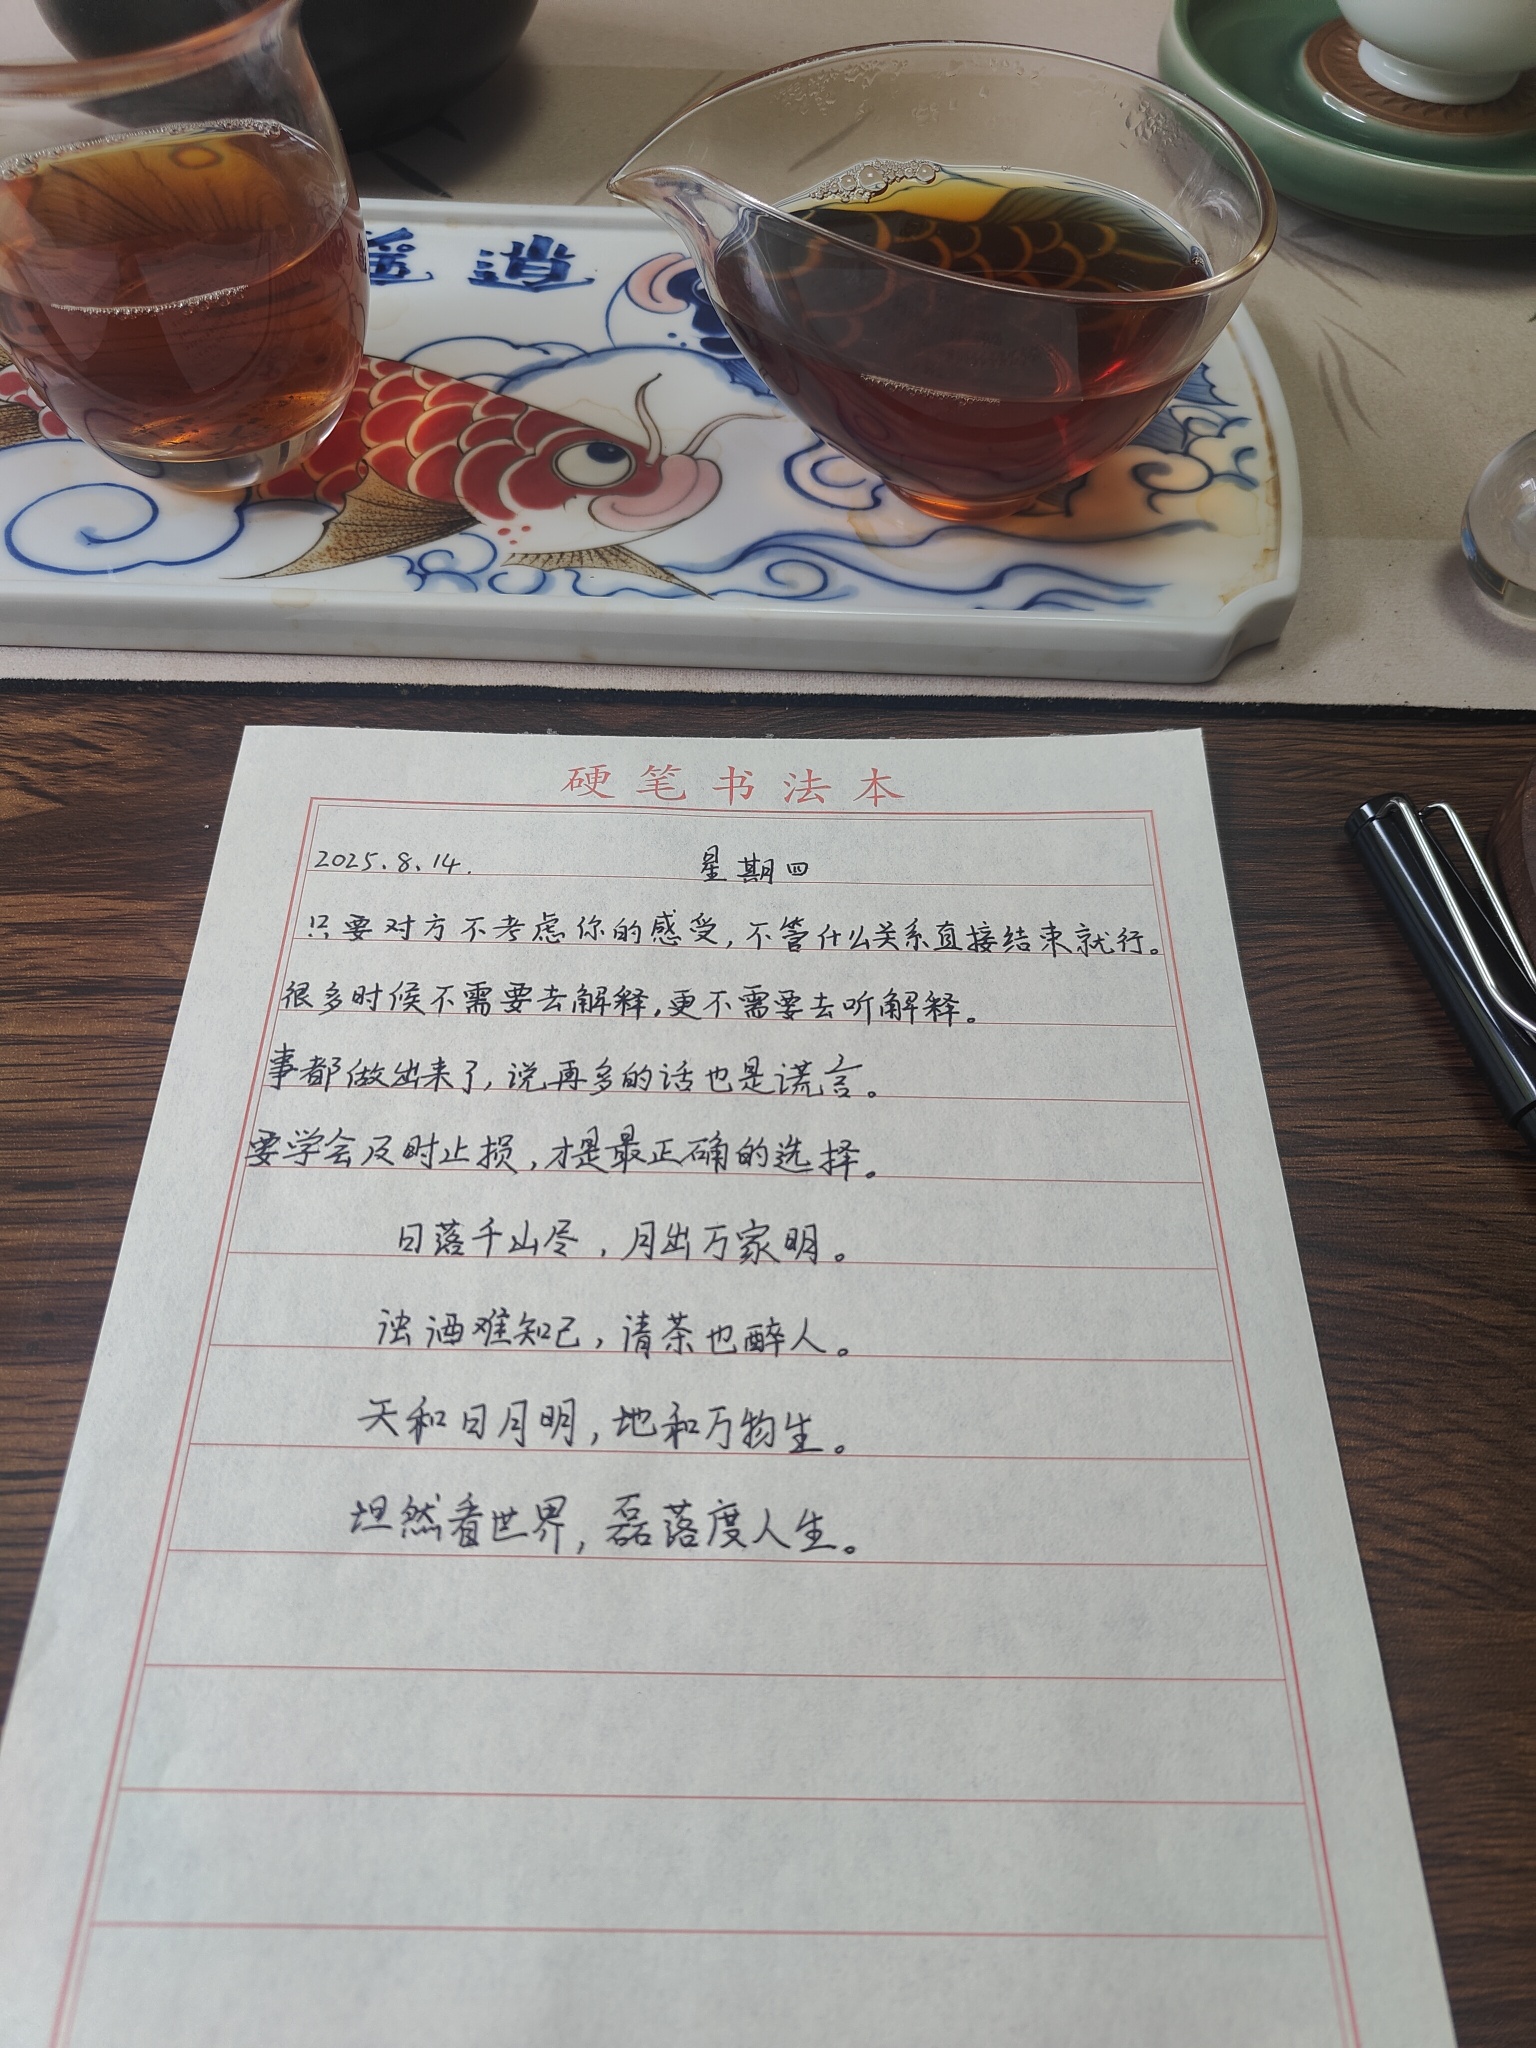 逍遥
硬笔书法本
2025.8.14. 星期四
只要对方不考虑你的感受,不管什么关系直接结束就行。
很多时候不需要去解释,更不需要去听解释。
事都做出来了,说再多的话也是谎言。
要学会及时止损,才是最正确的选择。
日落千山尽,月出万家明。
浊酒难知己,请茶也醉人。
天和日月明,地和万物生。
坦然看世界,磊落度人生。